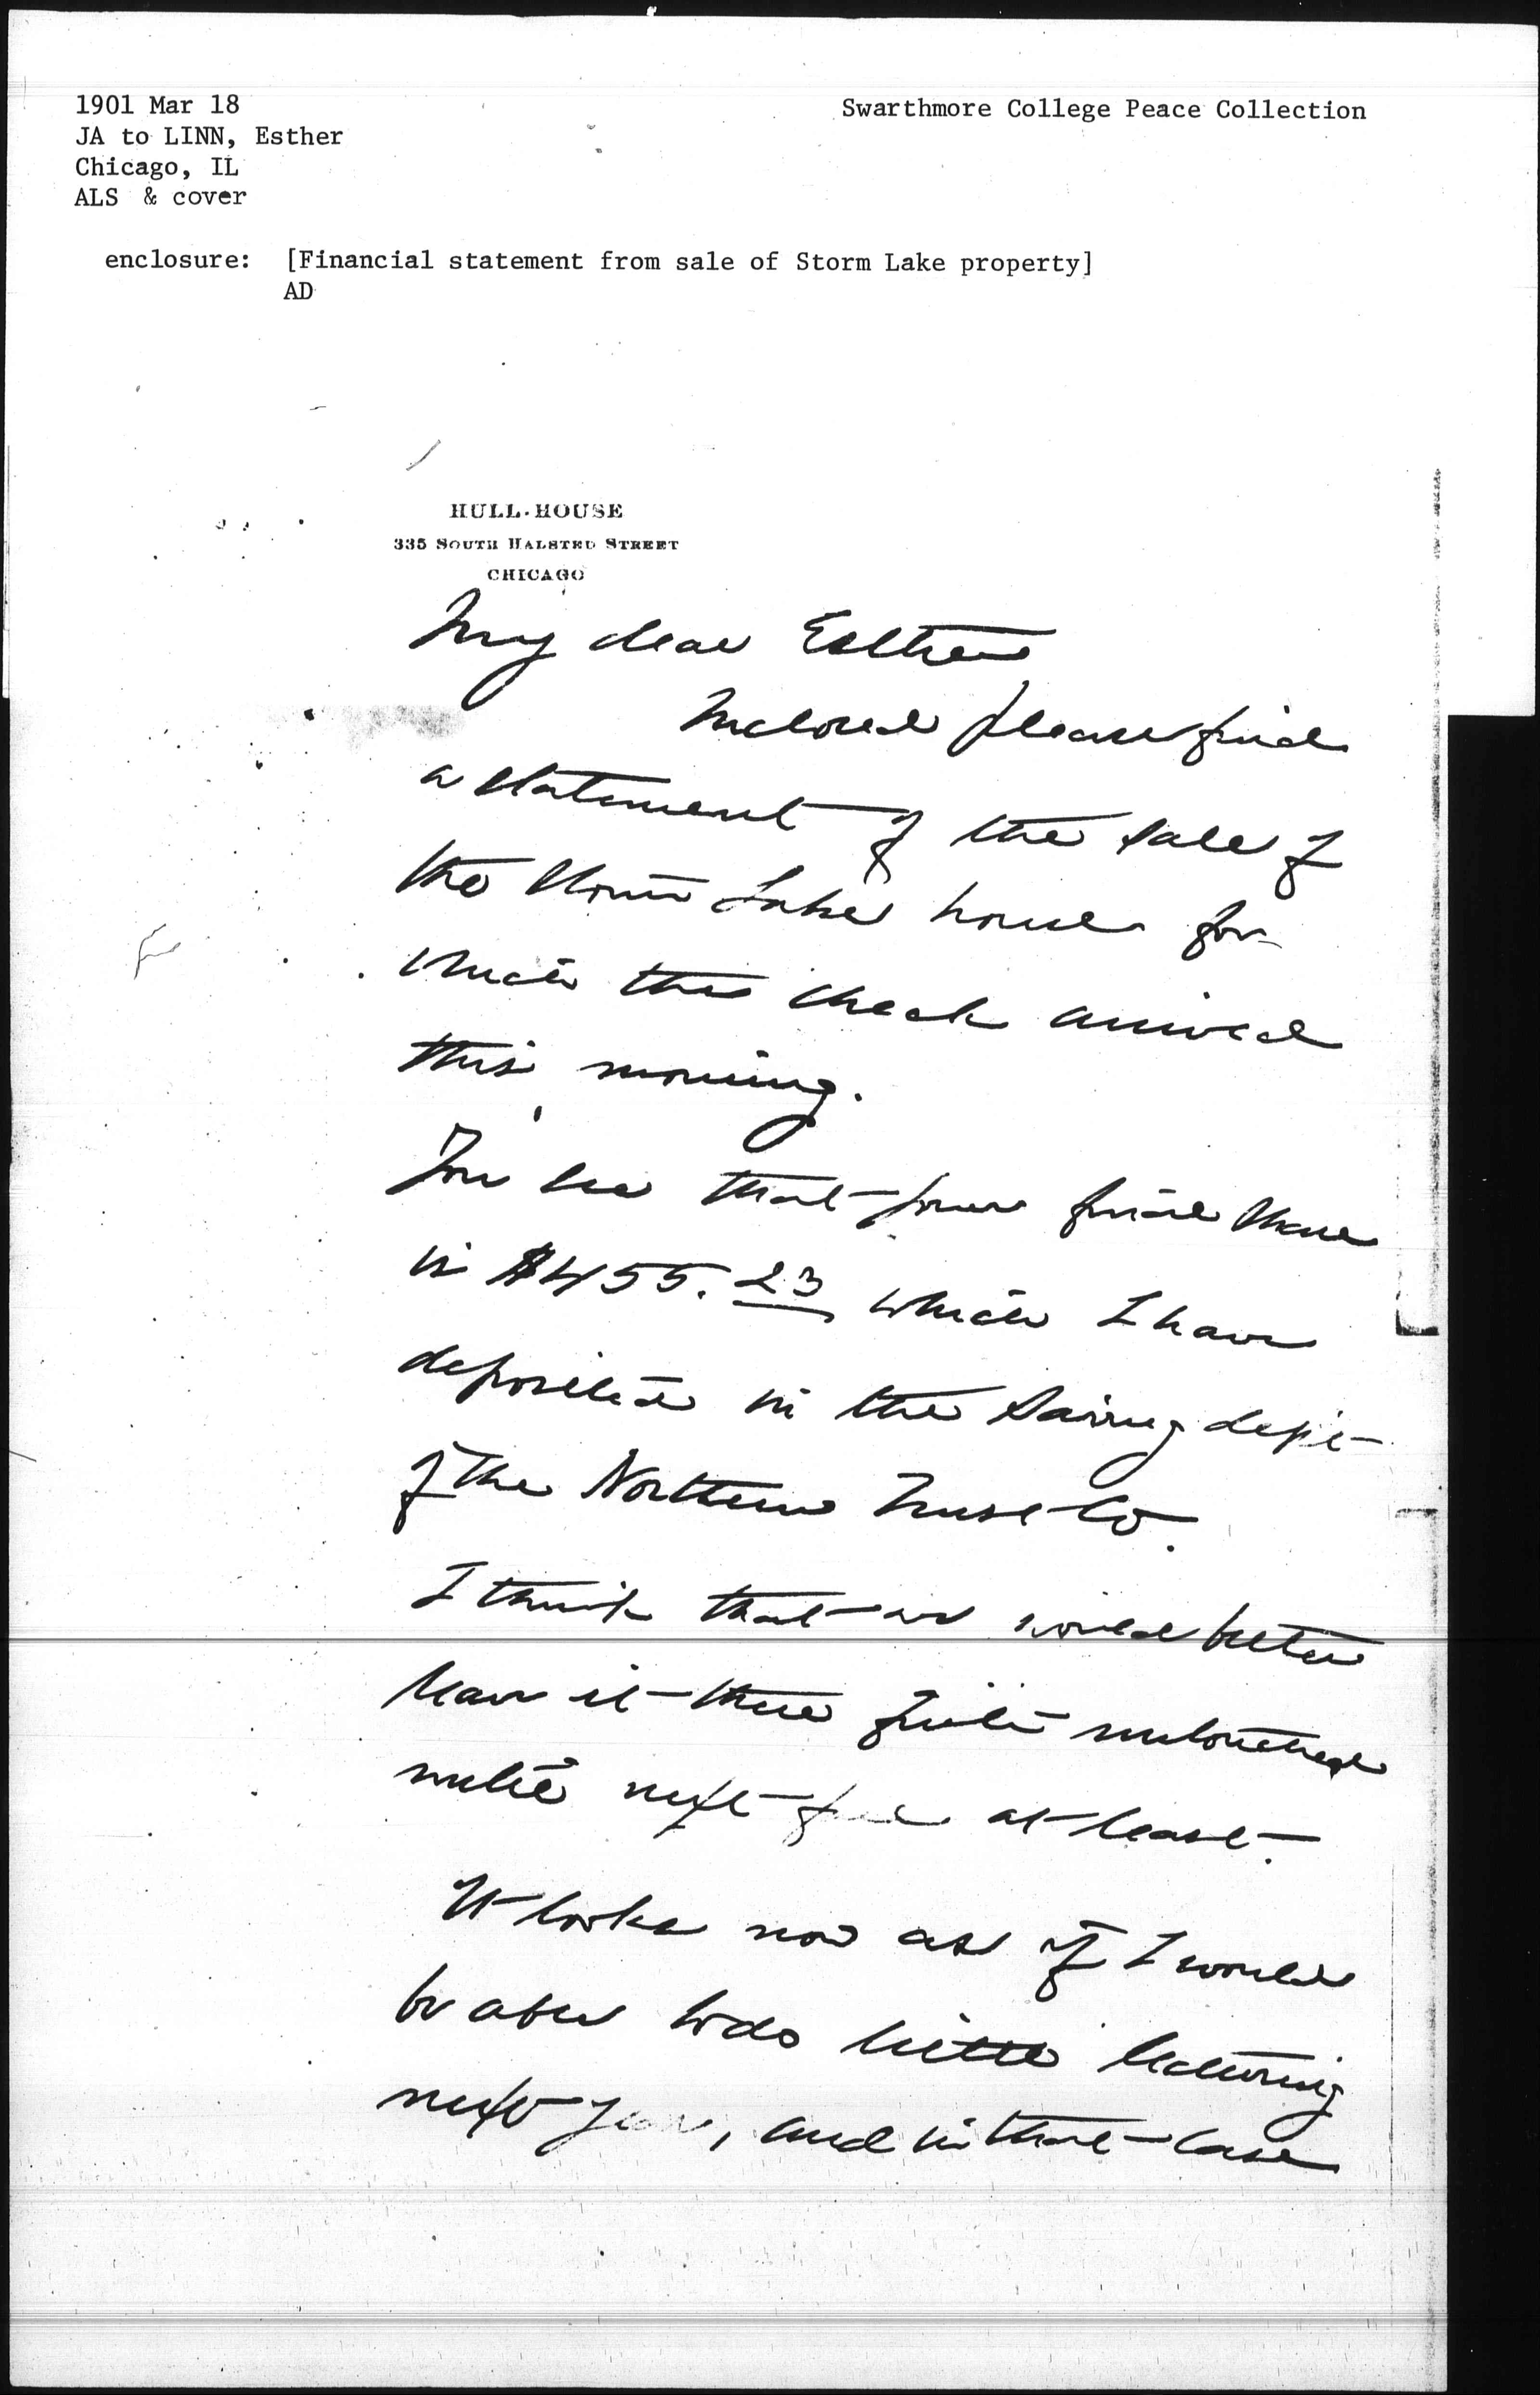 1901 Mar 18
JA to LINN, Esther
Chicago, IL
ALS & cover
Swarthmore College Peace Collection
enclosure: [Financial statement from sale of Storm Lake property]
AD
HULL-HOUSE
335 SOUTH HALSTED STREET
CHICAGO
My dear Esther
Inclosed please find
a statement of the sale of
the Storm Lake house for
which the check arrived
this morning.
You see that your final share
is $455.23 which I have
deposited in the Saving dept
of the Northern Trust Co.
I think that we would better
leave it there quite untouched
until next fall at least.
It looks now as if I would
be able to do little lecturing
next year, and in that case